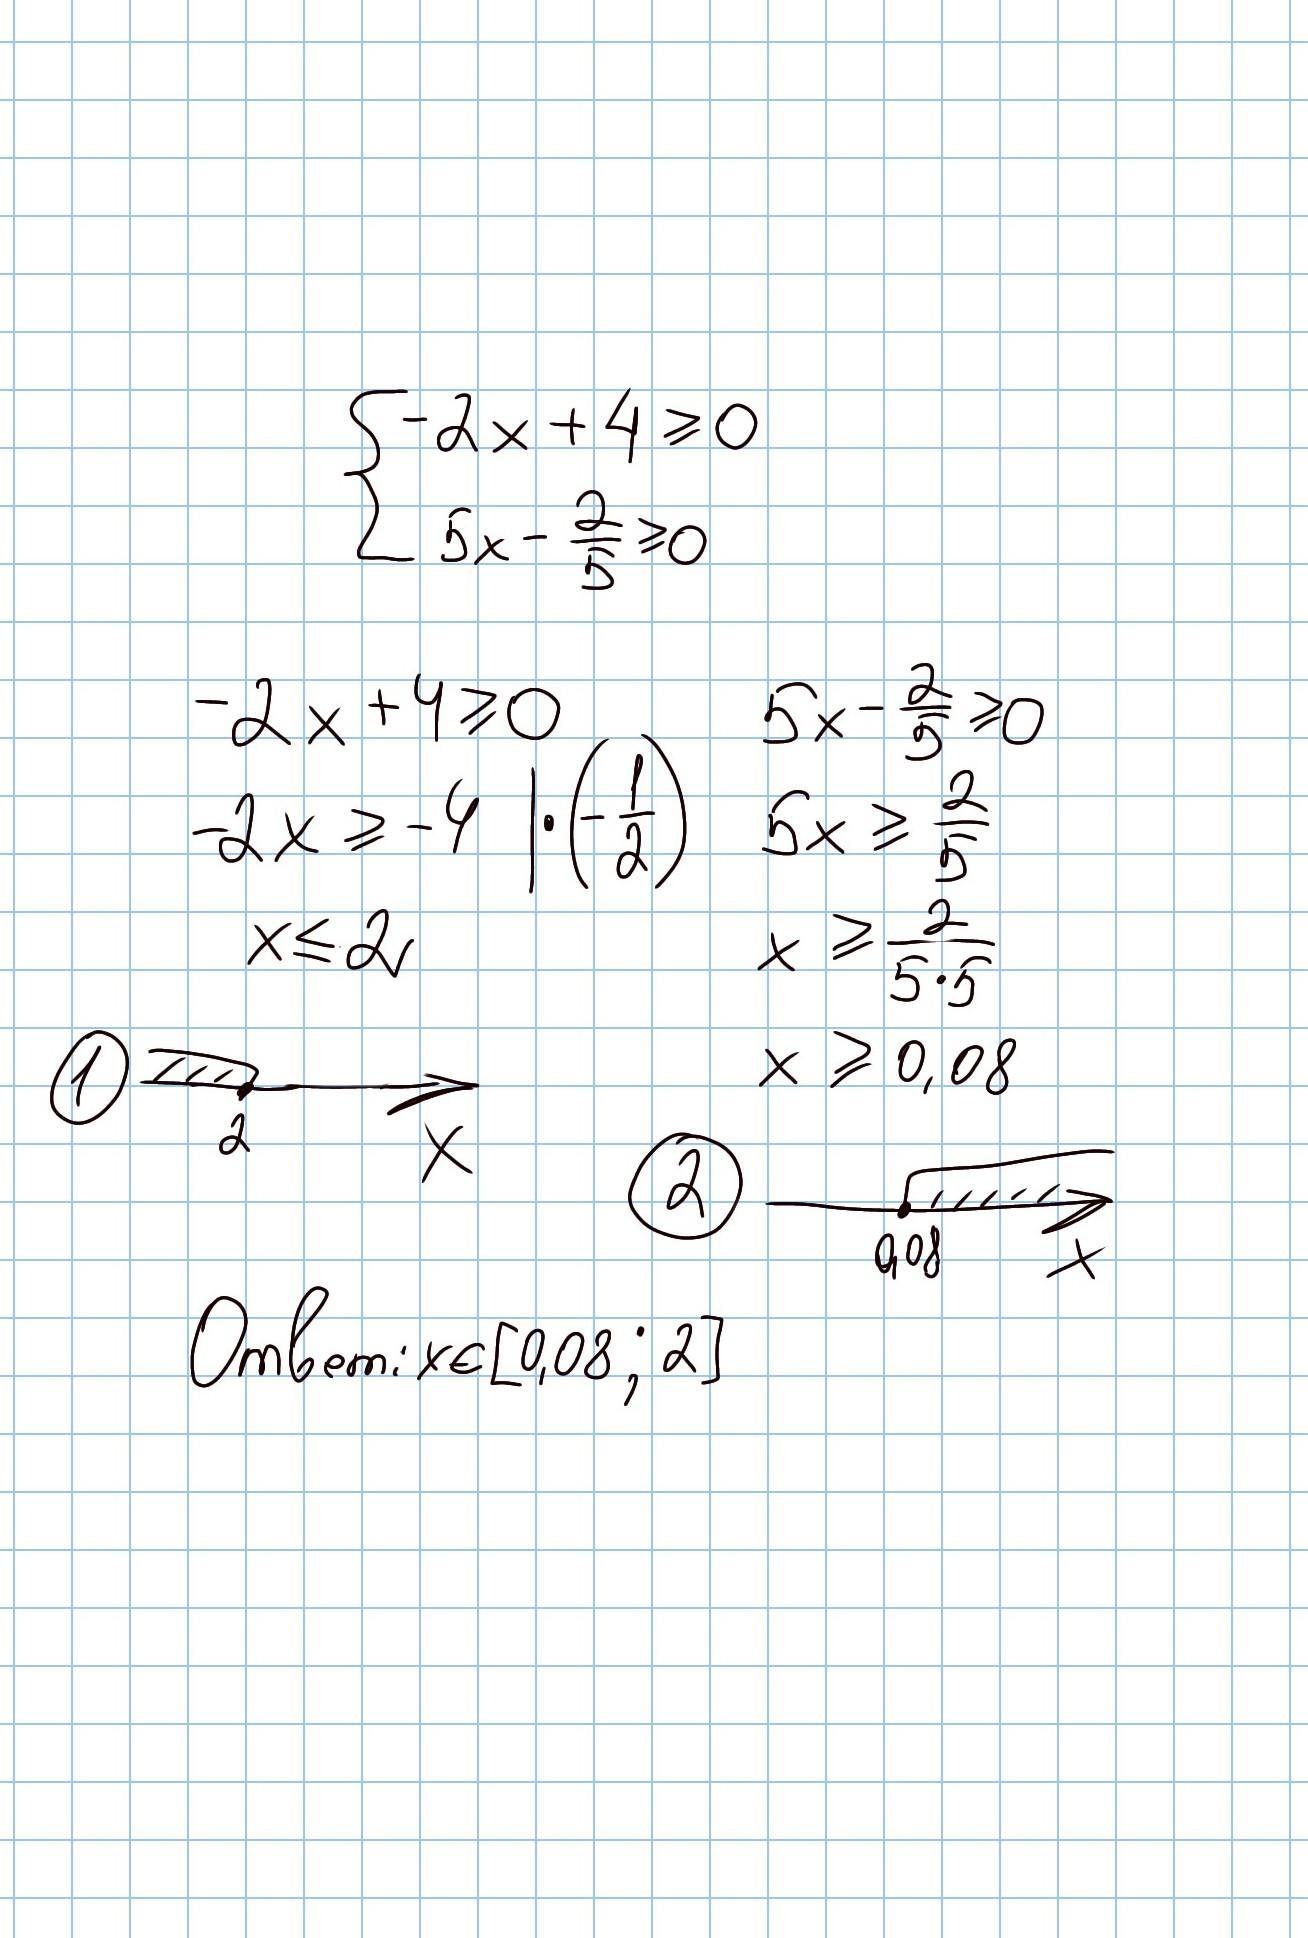 { -2x + 4 ⩾ 0
5x - 2/5 ⩾ 0
-2x + 4 ⩾ 0
-2x ⩾ -4 | · (-1/2)
x ≤ 2
① 2 x
5x - 2/5 ⩾ 0
5x ⩾ 2/5
x ⩾ 2/(5·5)
x ⩾ 0,08
② 0,08 x
Ответ: x ∈ [0,08 ; 2]